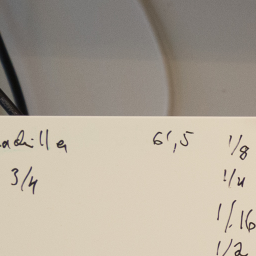 adilla 6',5 1/8
3/4 1/4
1/16
1/2